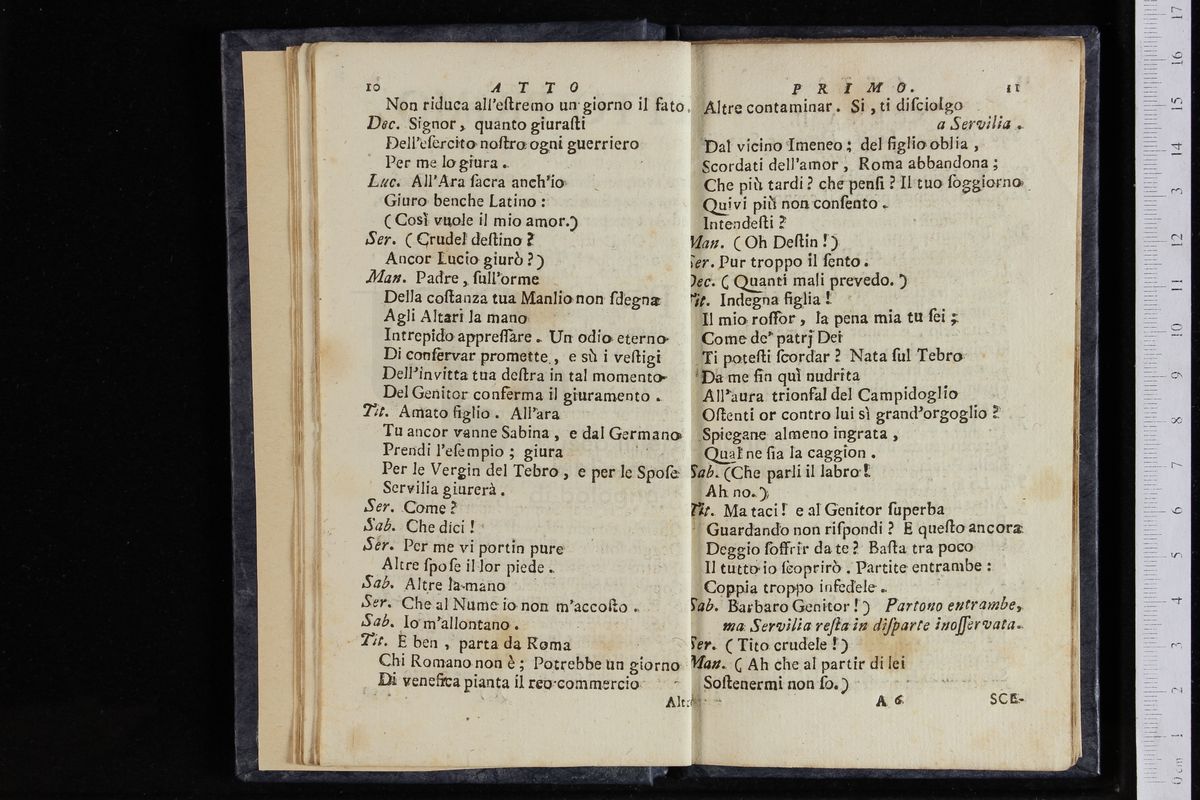 10 ATTO
Non riduca all'eſtremo un giorno il fato.
Dec. Signor, quanto giuraſti
Dell'eſercito noſtro ogni guerriero
Per me lo giura.
Luc. All'Ara ſacra anch'io
Giuro benche Latino:
(Così vuole il mio amor.)
Ser. (Crudel deſtino?
Ancor Lucio giurò?)
Man. Padre, ſull'orme
Della coſtanza tua Manlio non ſdegna
Agli Altari la mano
Intrepido appreſſare. Un odio eterno
Di conſervar promette, e sù i veſtigi
Dell'invitta tua deſtra in tal momento
Del Genitor conferma il giuramento.
Tit. Amato figlio. All'ara
Tu ancor vanne Sabina, e dal Germano
Prendi l'eſempio; giura
Per le Vergin del Tebro, e per le Spoſe
Servilia giurerà.
Ser. Come?
Sab. Che dici!
Ser. Per me vi portin pure
Altre ſpoſe il lor piede.
Sab. Altre la mano
Ser. Che al Nume io non m'accoſto.
Sab. Io m'allontano.
Tit. E ben, parta da Roma
Chi Romano non è; Potrebbe un giorno
Di venefica pianta il reo commercio
Altre
PRIMO. 11
Altre contaminar. Si, ti diſciolgo
a Servilia.
Dal vicino Imeneo; del figlio oblia,
Scordati dell'amor, Roma abbandona;
Che più tardi? che penſi? Il tuo ſoggiorno
Quivi più non conſento.
Intendeſti?
Man. (Oh Deſtin!)
Ser. Pur troppo il ſento.
Dec. (Quanti mali prevedo.)
Tit. Indegna figlia!
Il mio roſſor, la pena mia tu ſei;
Come de' patrj Dei
Ti poteſti ſcordar? Nata ſul Tebro
Da me fin quì nudrita
All'aura trionfal del Campidoglio
Oſtenti or contro lui sì grand'orgoglio?
Spiegane almeno ingrata,
Qual ne ſia la caggion.
Sab. (Che parli il labro!
Ah no.)
Tit. Ma taci! e al Genitor ſuperba
Guardando non riſpondi? E queſto ancora
Deggio ſoffrir da te? Baſta tra poco
Il tutto io ſcoprirò. Partite entrambe:
Coppia troppo infedele.
Sab. Barbaro Genitor!) Partono entrambe,
ma Servilia reſta in diſparte inoſſervata.
Ser. (Tito crudele!)
Man. (Ah che al partir di lei
Soſtenermi non ſo.)
A 6 SCE-